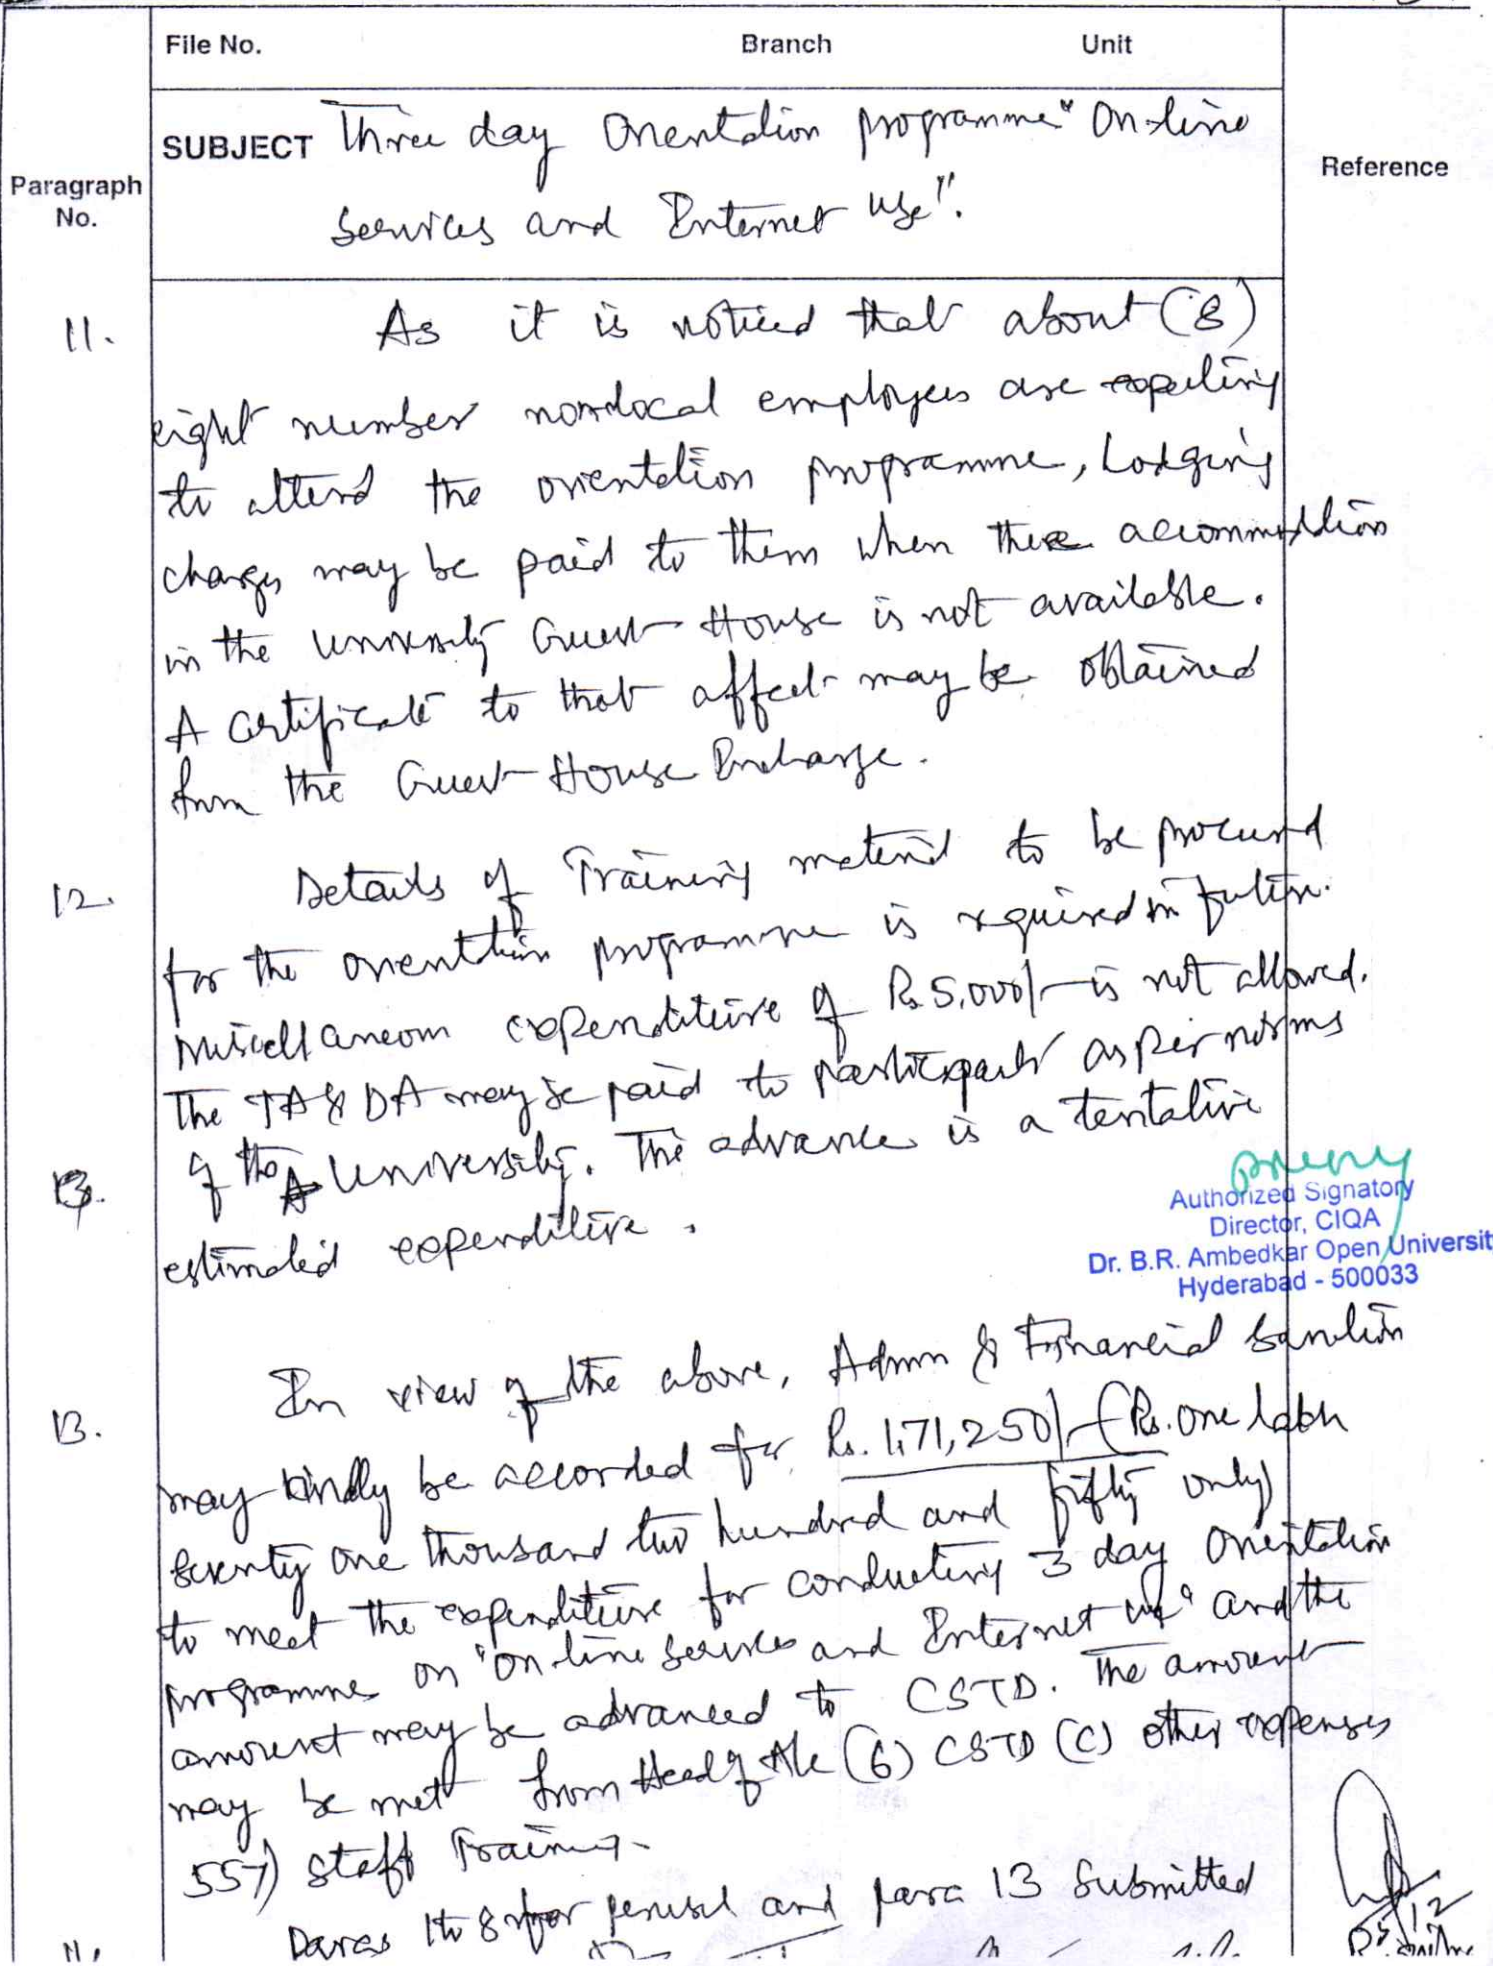 File No. Branch Unit
SUBJECT Three day Orientation programme "On-line
Paragraph No. Reference
Services and Internet use".
11. As it is noticed that about (8)
eight number nonlocal employees are expecting
to attend the orientation programme, Lodging
charges may be paid to them when there accommodation
in the University Guest House is not available.
A certificate to that affect may be obtained
from the Guest House Incharge.
12. Details of Training material to be procured
for the orientation programme is required in future.
Miscellaneous expenditure of Rs. 5,000/- is not allowed.
The TA & DA may be paid to participants as per norms
of the University. The advance is a tentative
estimated expenditure.
Authorized Signatory
Director, CIQA
Dr. B.R. Ambedkar Open Universit
Hyderabad - 500033
13. In view of the above, Admn & Financial Sanction
may kindly be accorded for Rs. 1,71,250/- (Rs. One lakh
seventy one thousand two hundred and fifty only)
to meet the expenditure for conducting 3 day Orientation
programme on "On-line Services and Internet use" and the
amount may be advanced to CSTD. The amount
may be met from Head of A/c (6) CSTD (C) other expenses
557) Staff Training.
Paras 1 to 8 for perusal and para 13 Submitted